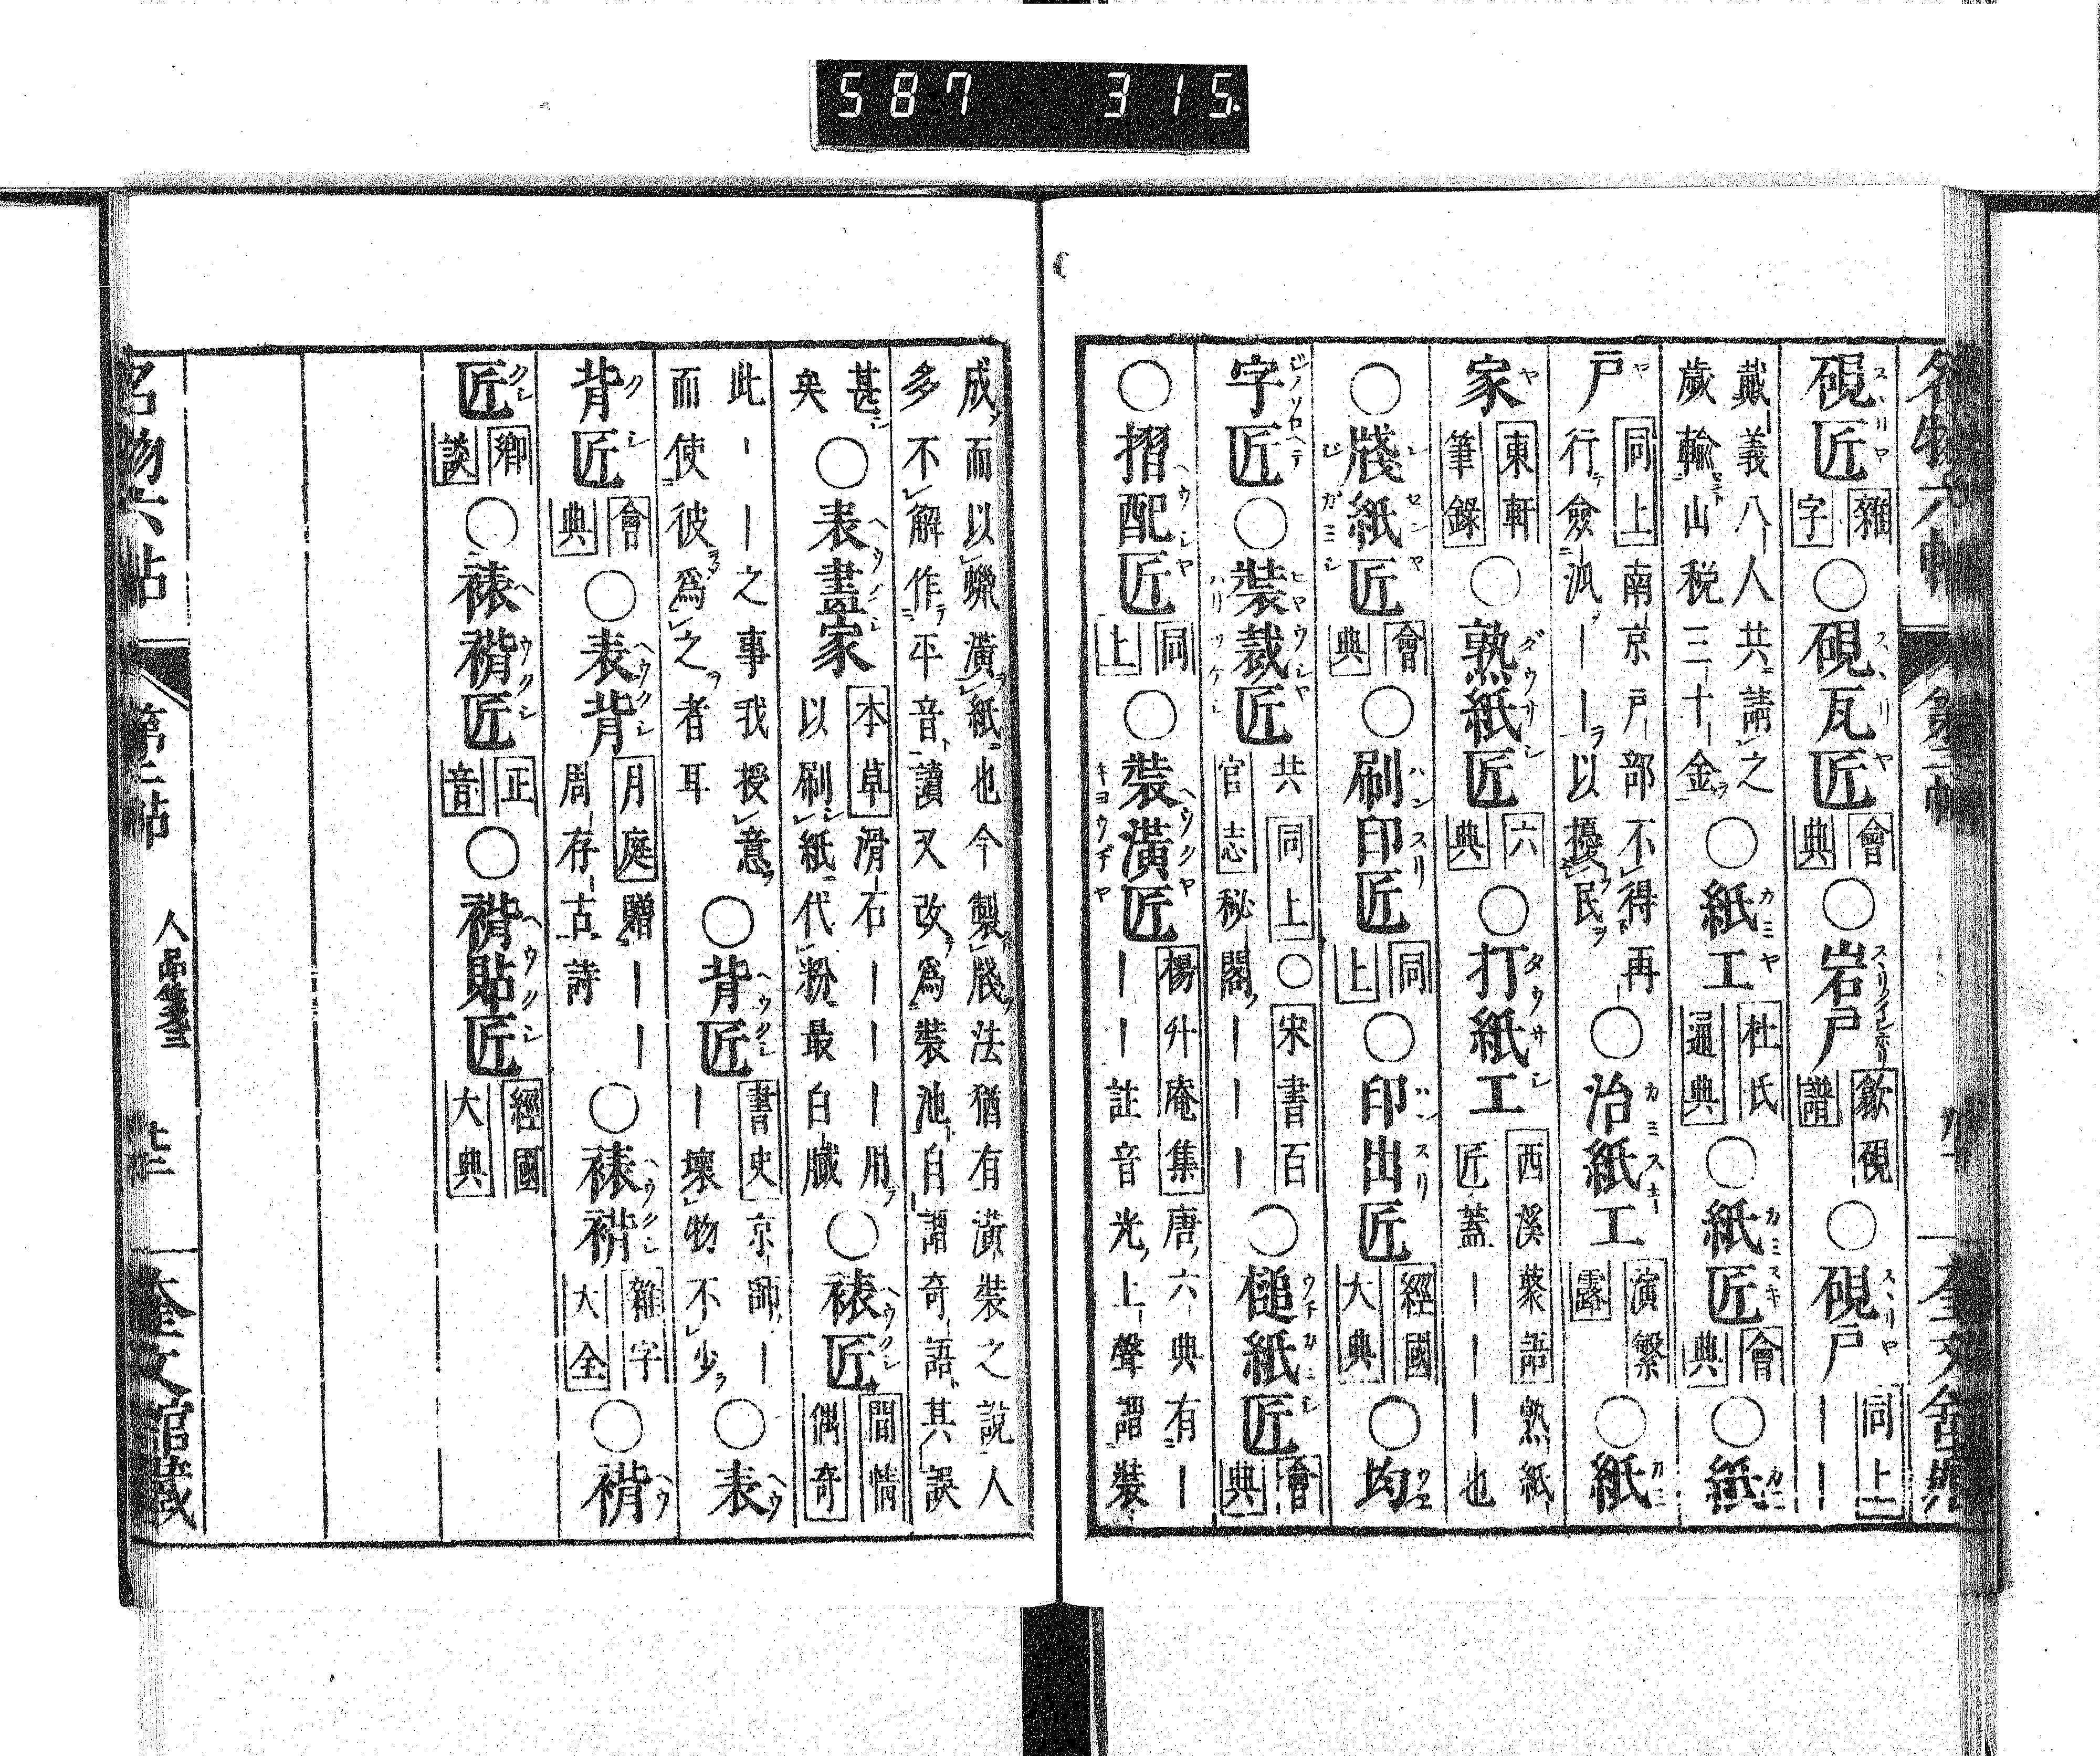 587 315.
硯匠 雜字 ○硯瓦匠 會典 ○岩戸 歙硯譜 ○硯戸 同上 ｜｜
戴義八人共請之歲輸山税三十金 ○紙工 杜氏通典 ○紙匠 會典 ○紙
戸 同上 南京戸部不得再行僉派｜｜以擾民 ○治紙工 演繁露 ○紙
家 東軒筆錄 ○熟紙匠 六典 ○打紙工 西溪叢語 熟紙匠蓋｜｜也
○牋紙匠 會典 ○刷印匠 同上 ○印出匠 經國大典 ○均
字匠 ○裝裁匠 共同上 ○宋書百官志 秘閣｜｜｜ ○槌紙匠 會典
○摺配匠 同上 ○裝潢匠 楊升庵集 唐六典有｜｜｜註音光上聲謂裝
成而以蠟潢紙也今製牋法猶有潢裝之說人多不解作平音讀又改爲裝池自謂奇語其誤
甚矣 ○表畫家 本草 滑石｜｜｜用以刷紙代粉最白膩 ○裱匠 閒情偶奇
此｜｜之事我授意而使彼爲之者耳 ○背匠 書史 京師｜｜壞物不少 ○表
背匠 會典 ○表背 月庭 贈｜｜周存古詩 ○裱褙 雜字大全 ○褙
匠 鄉談 ○裱褙匠 正音 ○褙貼匠 經國大典
名物六帖 第二帖 人品箋三 奎文館藏